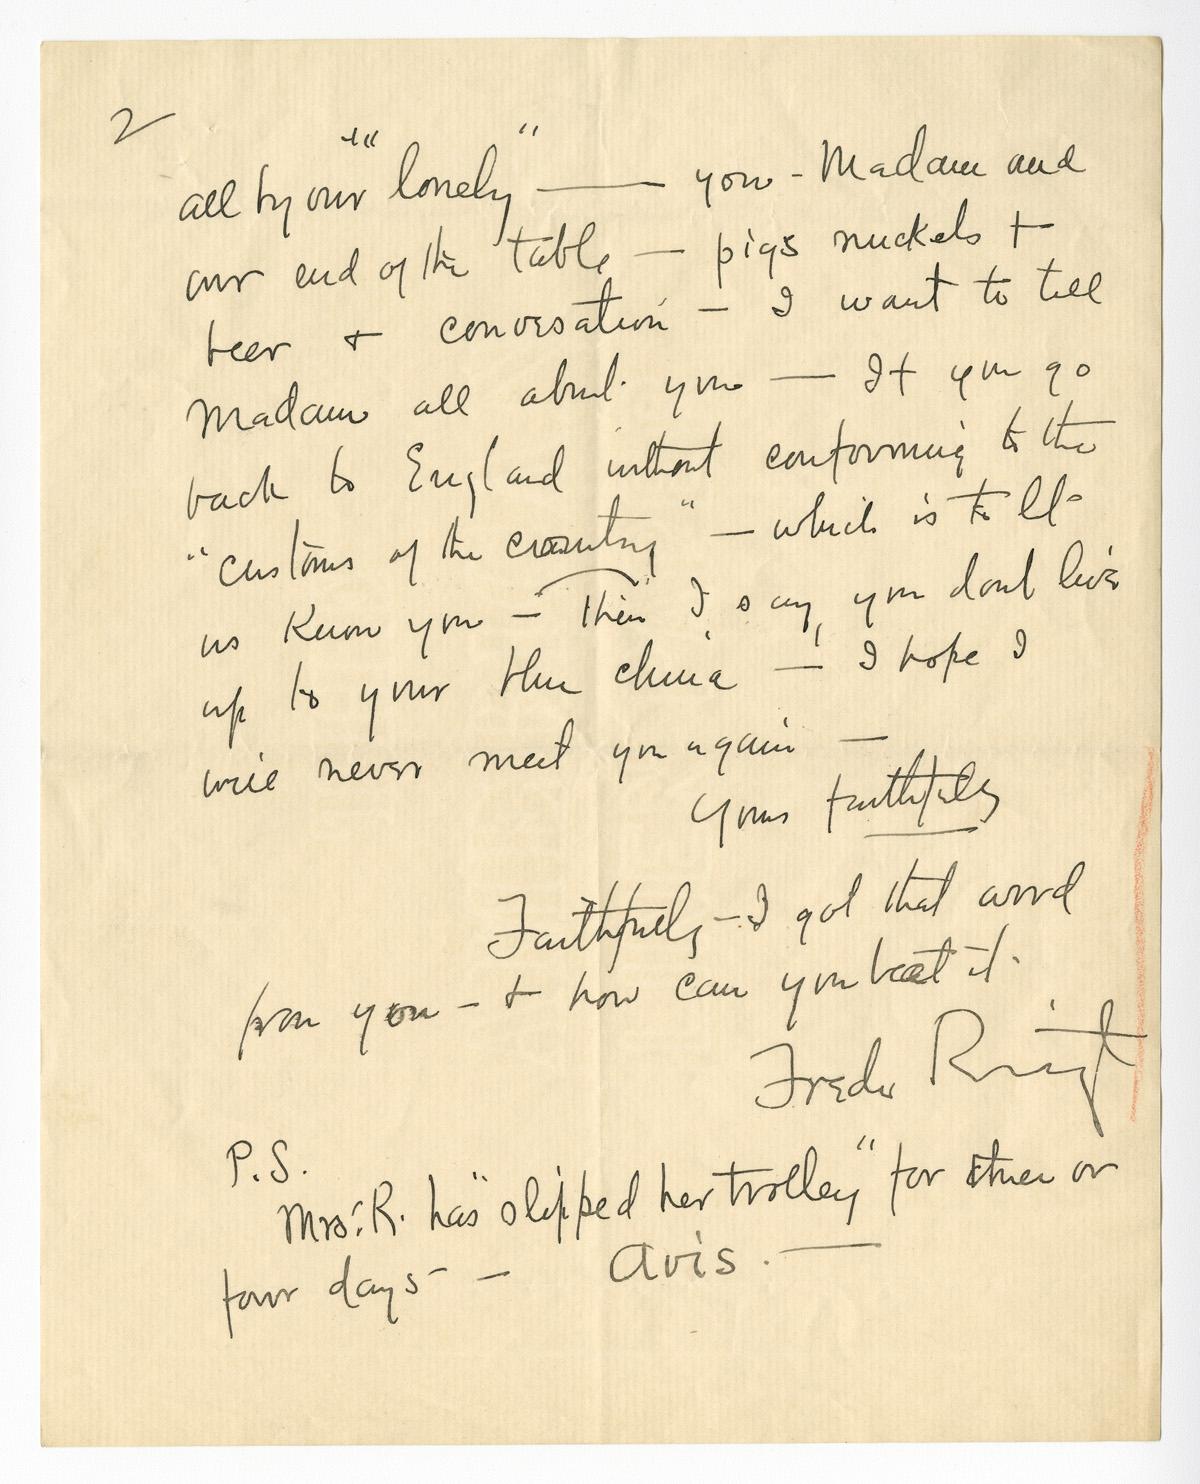 2
all by our "lonely" — you - Madam and
our end of the table — pigs nuckels +
beer + conversation — I want to tell
Madam all about you — If you go
back to England without conforming to the
"customs of the country" — which is to let
us know you — then I say, you dont live
up to your blue china — I hope I
we'll never meet you again —
Yours faithfully
Faithfully — I got that word
from you — + how can you beat it.
Frederic
P.S.
Mrs. R. has "slipped her trolley" for three or
four days — Avis. —